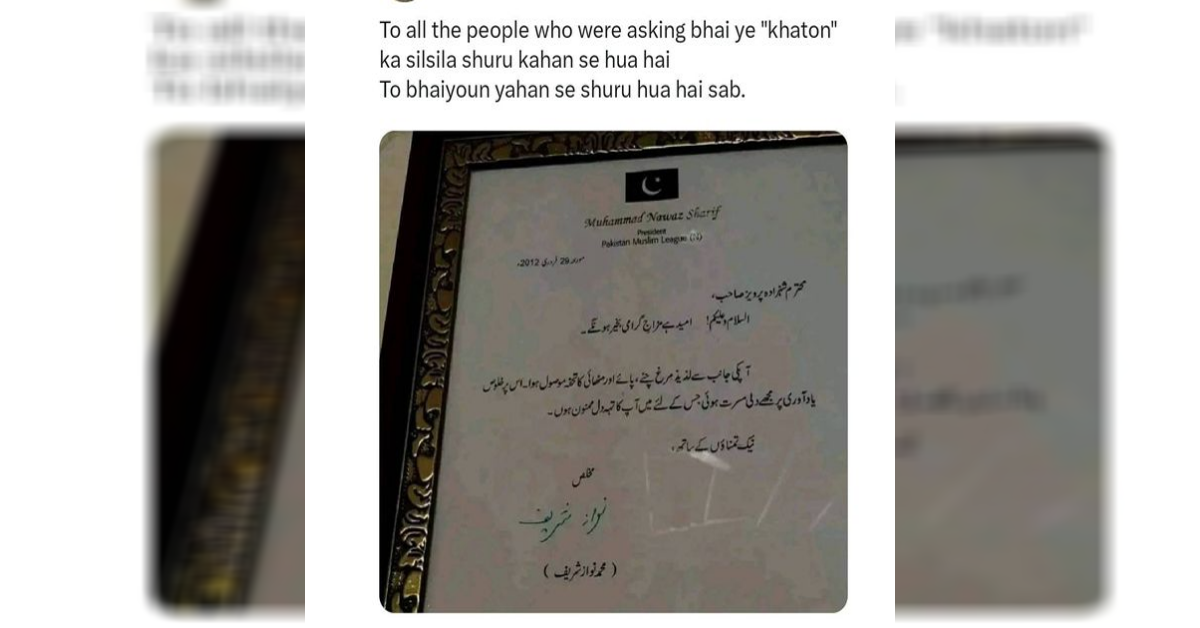 To all the people who were asking bhai ye "khaton"
ka silsila shuru kahan se hua hai
To bhaiyoun yahan se shuru hua hai sab.
Muhammad Nawaz Sharif
President
Pakistan Muslim League (N)
مورخہ 29 فروری 2012ء
محترم شہزادہ پرویز صاحب،
السلام وعلیکم! امید ہے مزاج گرامی بخیر ہونگے۔
آپکی جانب سے لذیذ مرغ چنے، پائے اور مٹھائی کا تحفہ موصول ہوا۔ اس پر خلوص
یاد آوری پر مجھے دلی مسرت ہوئی جس کے لئے میں آپ کا تہہ دل ممنون ہوں۔
نیک تمناؤں کے ساتھ،
مخلص
نواز شریف
( محمد نواز شریف )